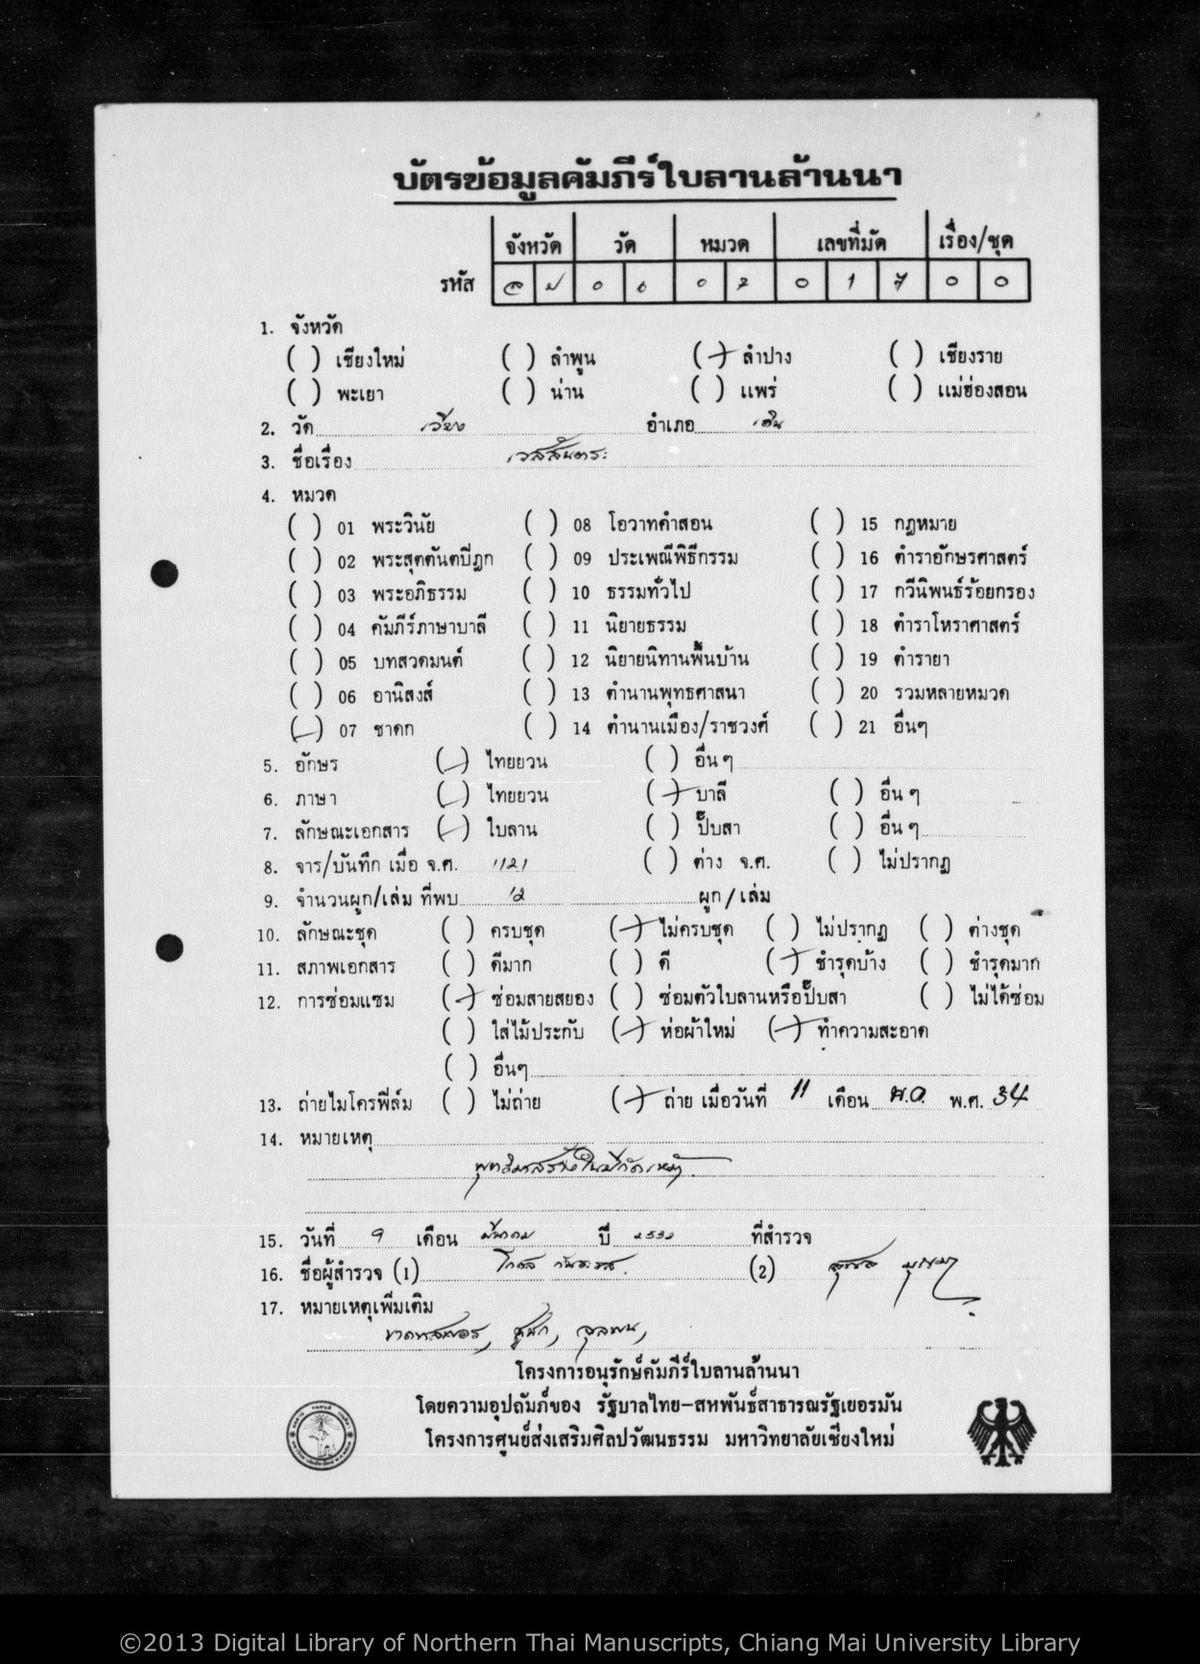 บัตรข้อมูลคัมภีร์ใบลานล้านนา
จังหวัด วัด หมวด เลขที่มัด เรื่อง/ชุด
รหัส ล ป 0 6 0 7 0 1 7 0 0
1. จังหวัด
( ) เชียงใหม่ ( ) ลำพูน (/) ลำปาง ( ) เชียงราย
( ) พะเยา ( ) น่าน ( ) แพร่ ( ) แม่ฮ่องสอน
2. วัด เวียง อำเภอ เถิน
3. ชื่อเรื่อง เวสสันตระ
4. หมวด
( ) 01 พระวินัย ( ) 08 โอวาทคำสอน ( ) 15 กฎหมาย
( ) 02 พระสุตตันตปิฎก ( ) 09 ประเพณีพิธีกรรม ( ) 16 ตำราอักษรศาสตร์
( ) 03 พระอภิธรรม ( ) 10 ธรรมทั่วไป ( ) 17 กวีนิพนธ์ร้อยกรอง
( ) 04 คัมภีร์ภาษาบาลี ( ) 11 นิยายธรรม ( ) 18 ตำราโหราศาสตร์
( ) 05 บทสวดมนต์ ( ) 12 นิยายนิทานพื้นบ้าน ( ) 19 ตำรายา
( ) 06 อานิสงส์ ( ) 13 ตำนานพุทธศาสนา ( ) 20 รวมหลายหมวด
(/) 07 ชาดก ( ) 14 ตำนานเมือง/ราชวงศ์ ( ) 21 อื่นๆ
5. อักษร (/) ไทยยวน ( ) อื่นๆ
6. ภาษา (/) ไทยยวน (/) บาลี ( ) อื่นๆ
7. ลักษณะเอกสาร (/) ใบลาน ( ) ปั๊บสา ( ) อื่นๆ
8. จาร/บันทึก เมื่อ จ.ศ. 1121 ( ) ต่าง จ.ศ. ( ) ไม่ปรากฏ
9. จำนวนผูก/เล่ม ที่พบ 12 ผูก/เล่ม
10. ลักษณะชุด ( ) ครบชุด (/) ไม่ครบชุด ( ) ไม่ปรากฏ ( ) ต่างชุด
11. สภาพเอกสาร ( ) ดีมาก ( ) ดี (/) ชำรุดบ้าง ( ) ชำรุดมาก
12. การซ่อมแซม (/) ซ่อมสายสยอง ( ) ซ่อมตัวใบลานหรือปั๊บสา ( ) ไม่ได้ซ่อม
( ) ใส่ไม้ประกับ (/) ห่อผ้าใหม่ (/) ทำความสะอาด
( ) อื่นๆ
13. ถ่ายไมโครฟิล์ม ( ) ไม่ถ่าย (/) ถ่าย เมื่อวันที่ 11 เดือน พ.ค. พ.ศ. 34
14. หมายเหตุ
15. วันที่ 9 เดือน มีนาคม ปี 2532 ที่สำรวจ
16. ชื่อผู้สำรวจ (1) (2)
17. หมายเหตุเพิ่มเติม
โครงการอนุรักษ์คัมภีร์ใบลานล้านนา
โดยความอุปถัมภ์ของ รัฐบาลไทย-สหพันธ์สาธารณรัฐเยอรมัน
โครงการศูนย์ส่งเสริมศิลปวัฒนธรรม มหาวิทยาลัยเชียงใหม่
©2013 Digital Library of Northern Thai Manuscripts, Chiang Mai University Library